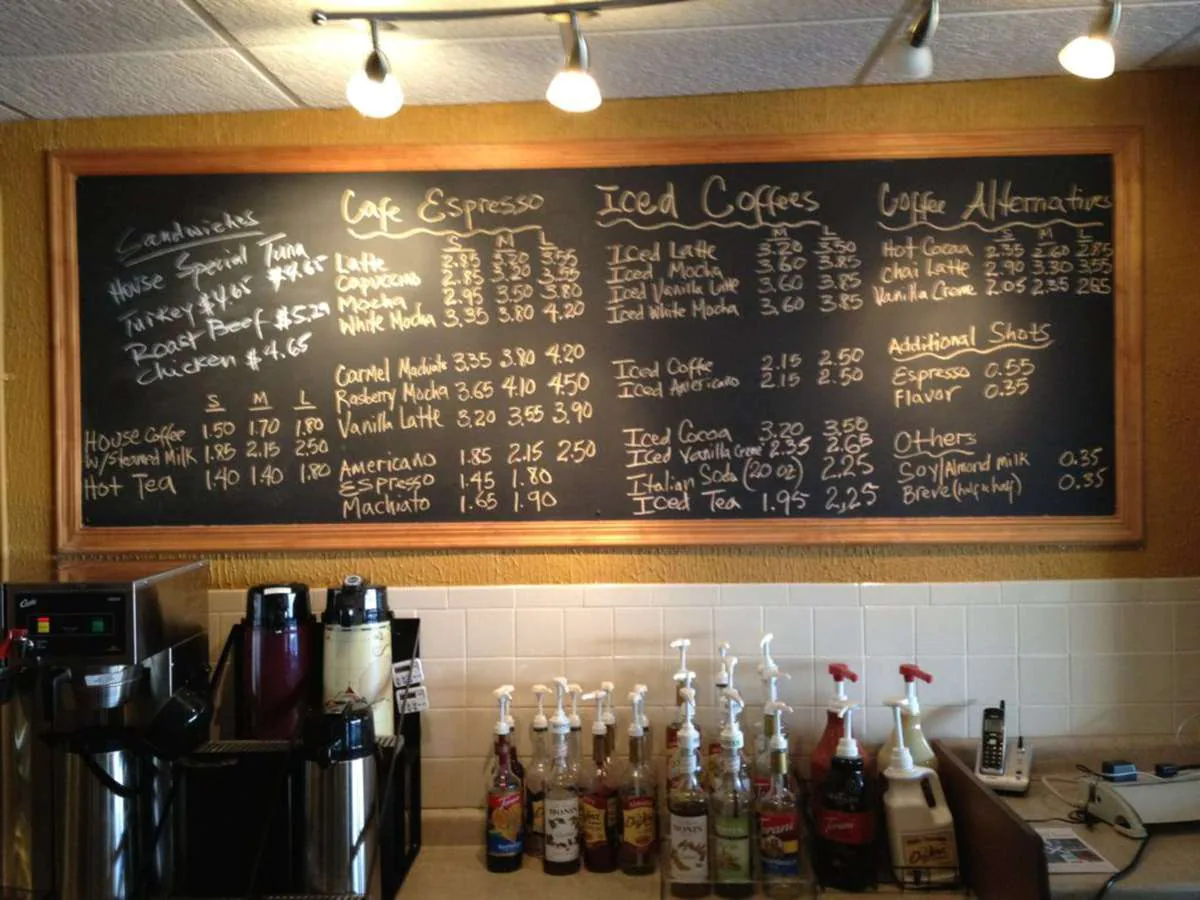 Sandwiches
House Special Tuna $4.65
Turkey $4.65
Roast Beef $5.29
Chicken $4.65
S M L
House Coffee 1.50 1.70 1.80
w/Steamed Milk 1.85 2.15 2.50
Hot Tea 1.40 1.40 1.80
Cafe Espresso
S M L
Latte 2.85 3.20 3.55
Capuccino 2.85 3.20 3.55
Mocha 2.95 3.50 3.80
White Mocha 3.35 3.80 4.20
Carmel Machiato 3.35 3.80 4.20
Rasberry Mocha 3.65 4.10 4.50
Vanilla Latte 3.20 3.55 3.90
Americano 1.85 2.15 2.50
Espresso 1.45 1.80
Machiato 1.65 1.90
Iced Coffees
M L
Iced Latte 3.20 3.50
Iced Mocha 3.60 3.85
Iced Vanilla Latte 3.60 3.85
Iced White Mocha 3.60 3.85
Iced Coffe 2.15 2.50
Iced Americano 2.15 2.50
Iced Cocoa 3.20 3.50
Iced Vanilla Creme 2.35 2.65
Italian Soda (20 oz) 2.25
Iced Tea 1.95 2.25
Coffee Alternatives
S M L
Hot Cocoa 2.35 2.60 2.85
Chai Latte 2.90 3.30 3.55
Vanilla Creme 2.05 2.35 2.65
Additional Shots
Espresso 0.55
Flavor 0.35
Others
Soy/Almond milk 0.35
Breve (half & half) 0.35
Torani
MONIN
MONIN
Torani
Torani